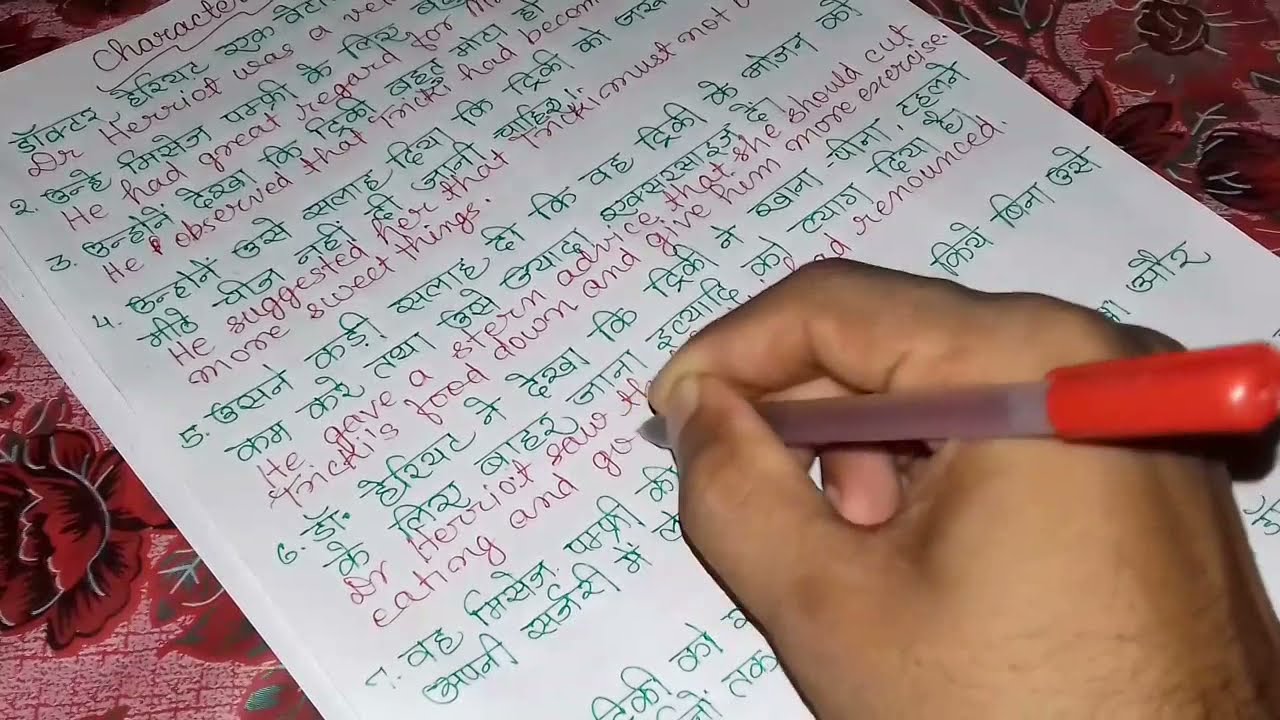 Character
डॉक्टर हैरियट एक
Dr Herriot was a
2. उन्हें मिसेज पम्फ्री के लिए
He had great regard for
3. उन्होंनें देखा कि ट्रिकी बहुत मोटा हो
He observed that Tricki had become
4. उन्होंनें उसे सलाह दिया कि ट्रिकी को
मीठे चीज नहीं दी जानी चाहिए।
He suggested her that Tricki must not
more sweet things.
5. उसने कड़ी सलाह दी कि वह ट्रिकी के भोजन को
कम करे तथा उसे ज्यादा एक्सरसाइज दे।
He gave a stern advice that she should cut
Trickiis food down and give him more exercise.
6. डॉ. हैरियट ने देखा कि ट्रिकी ने खाना-पीना, टहलने
के लिए बाहर जाना इत्यादि को त्याग दिया है।
Dr Herriot saw had renounced
eating and go
7. वह मिसेज पम्फ्री की किये बिना उसे
अपनी सर्जरी में और
ट्रिकी को
तक